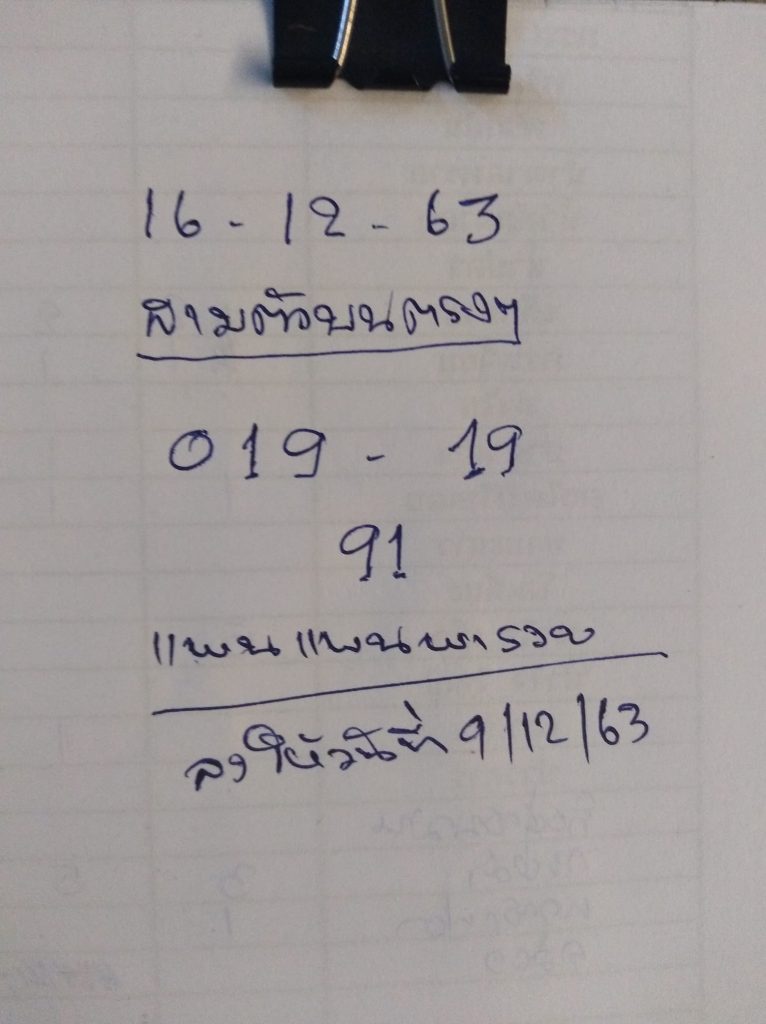 16 - 12 - 63
สามตัวบนตรงๆ
019 - 19
91
แพนแพนพารวย
ลงให้วันที่ 9/12/63